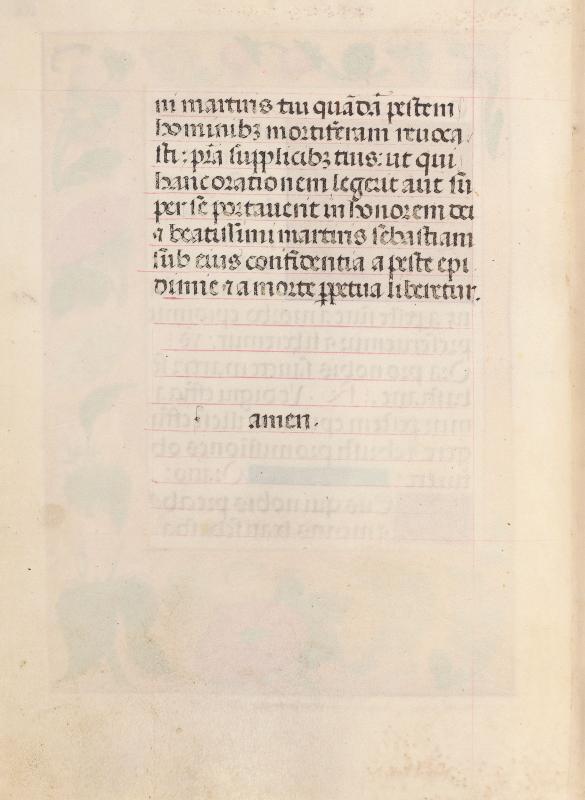 ni martiris tui quādā pestem
hominibꝫ mortiferam reuoca
sti: p̄ra supplicibꝫ tuis: ut qui
hanc orationem legerit aut su
per se portauerit in honorem dei
⁊ beatissimi martiris sebastiani
sub eius confidentia a peste epi
dimie ⁊ a morte ꝑpetua liberetur.
amen.